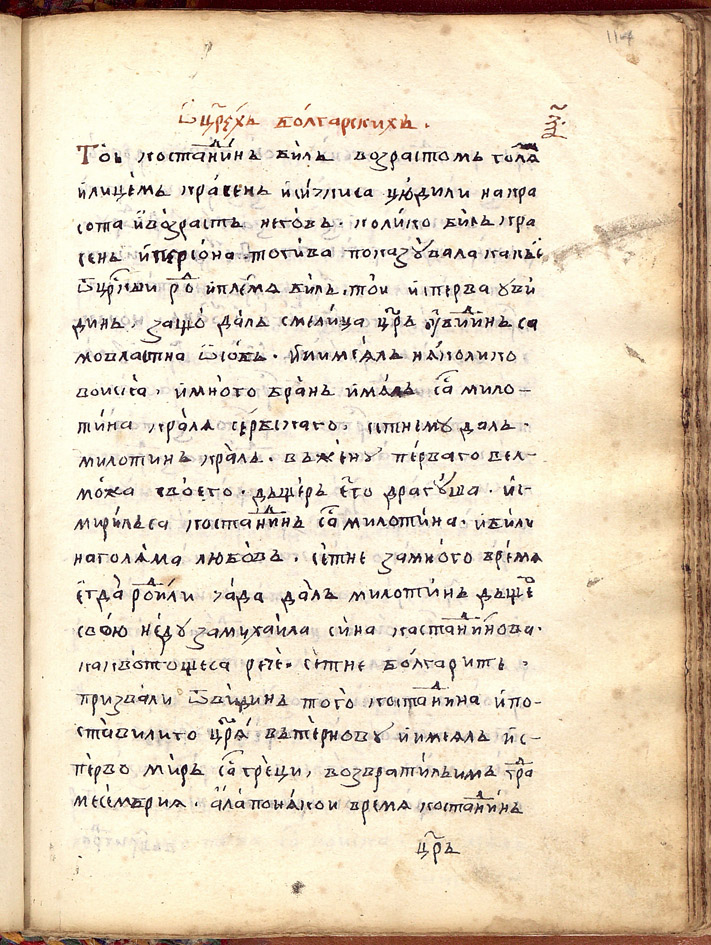 114
Ѿ цр҃ехъ болгарскихъ .
Тои костандинъ билъ возрастомъ голѧ
и лицемъ красенъ и си чл҃иса цюдили на кра
сота и возрастъ неговъ . колико билъ кра
сенъ и персона . тогива показувала како е
Ѿ цр҃ски родъ и племѧ билъ . тои исперва у ви
динъ . защо далъ смелица цр҃ъ у видинъ са
мовластна Ѿ собъ . и имеѧлъ неколико
воиска . и много брань имѧлъ са мило-
тина кралѧ сербскаго . сетне му далъ .
милотинъ кралъ . въ жену первагo вел-
можа своего . дъщеръ его драгуша . ис-
мирилъ са костандинъ са милотина . и били
на голѧма любовъ . сетне за много времѧ
егда родили чада далъ милотинъ дъщерю
свою неду за михаила сина костандинова .
како в тощеса рече . сетне болгарить .
призвали Ѿ видинъ того костандина и по-
ставили го цр҃ѧ въ терновy и имеѧлъ ис-
перво миръ са греци , возвратилъ им градъ
месембриѧ . ала по некои времѧ костандинъ
цр҃ъ